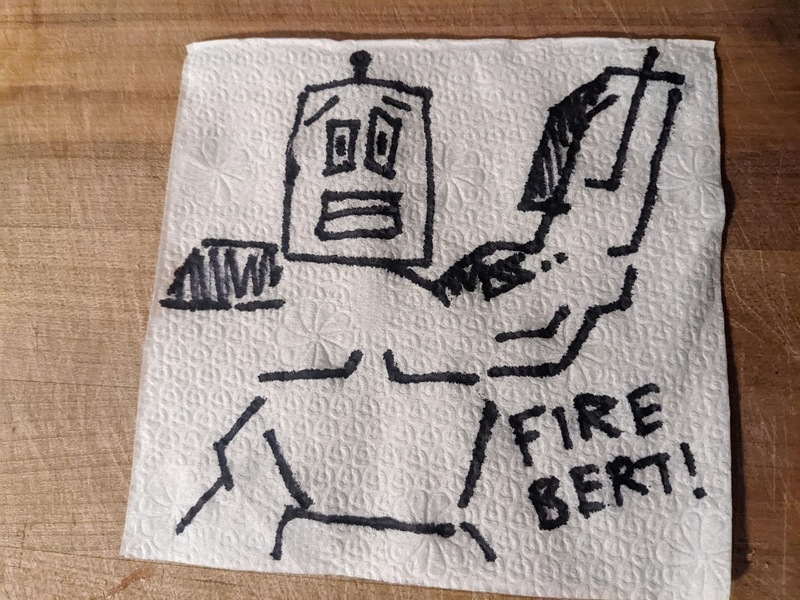 FIRE
BERT!